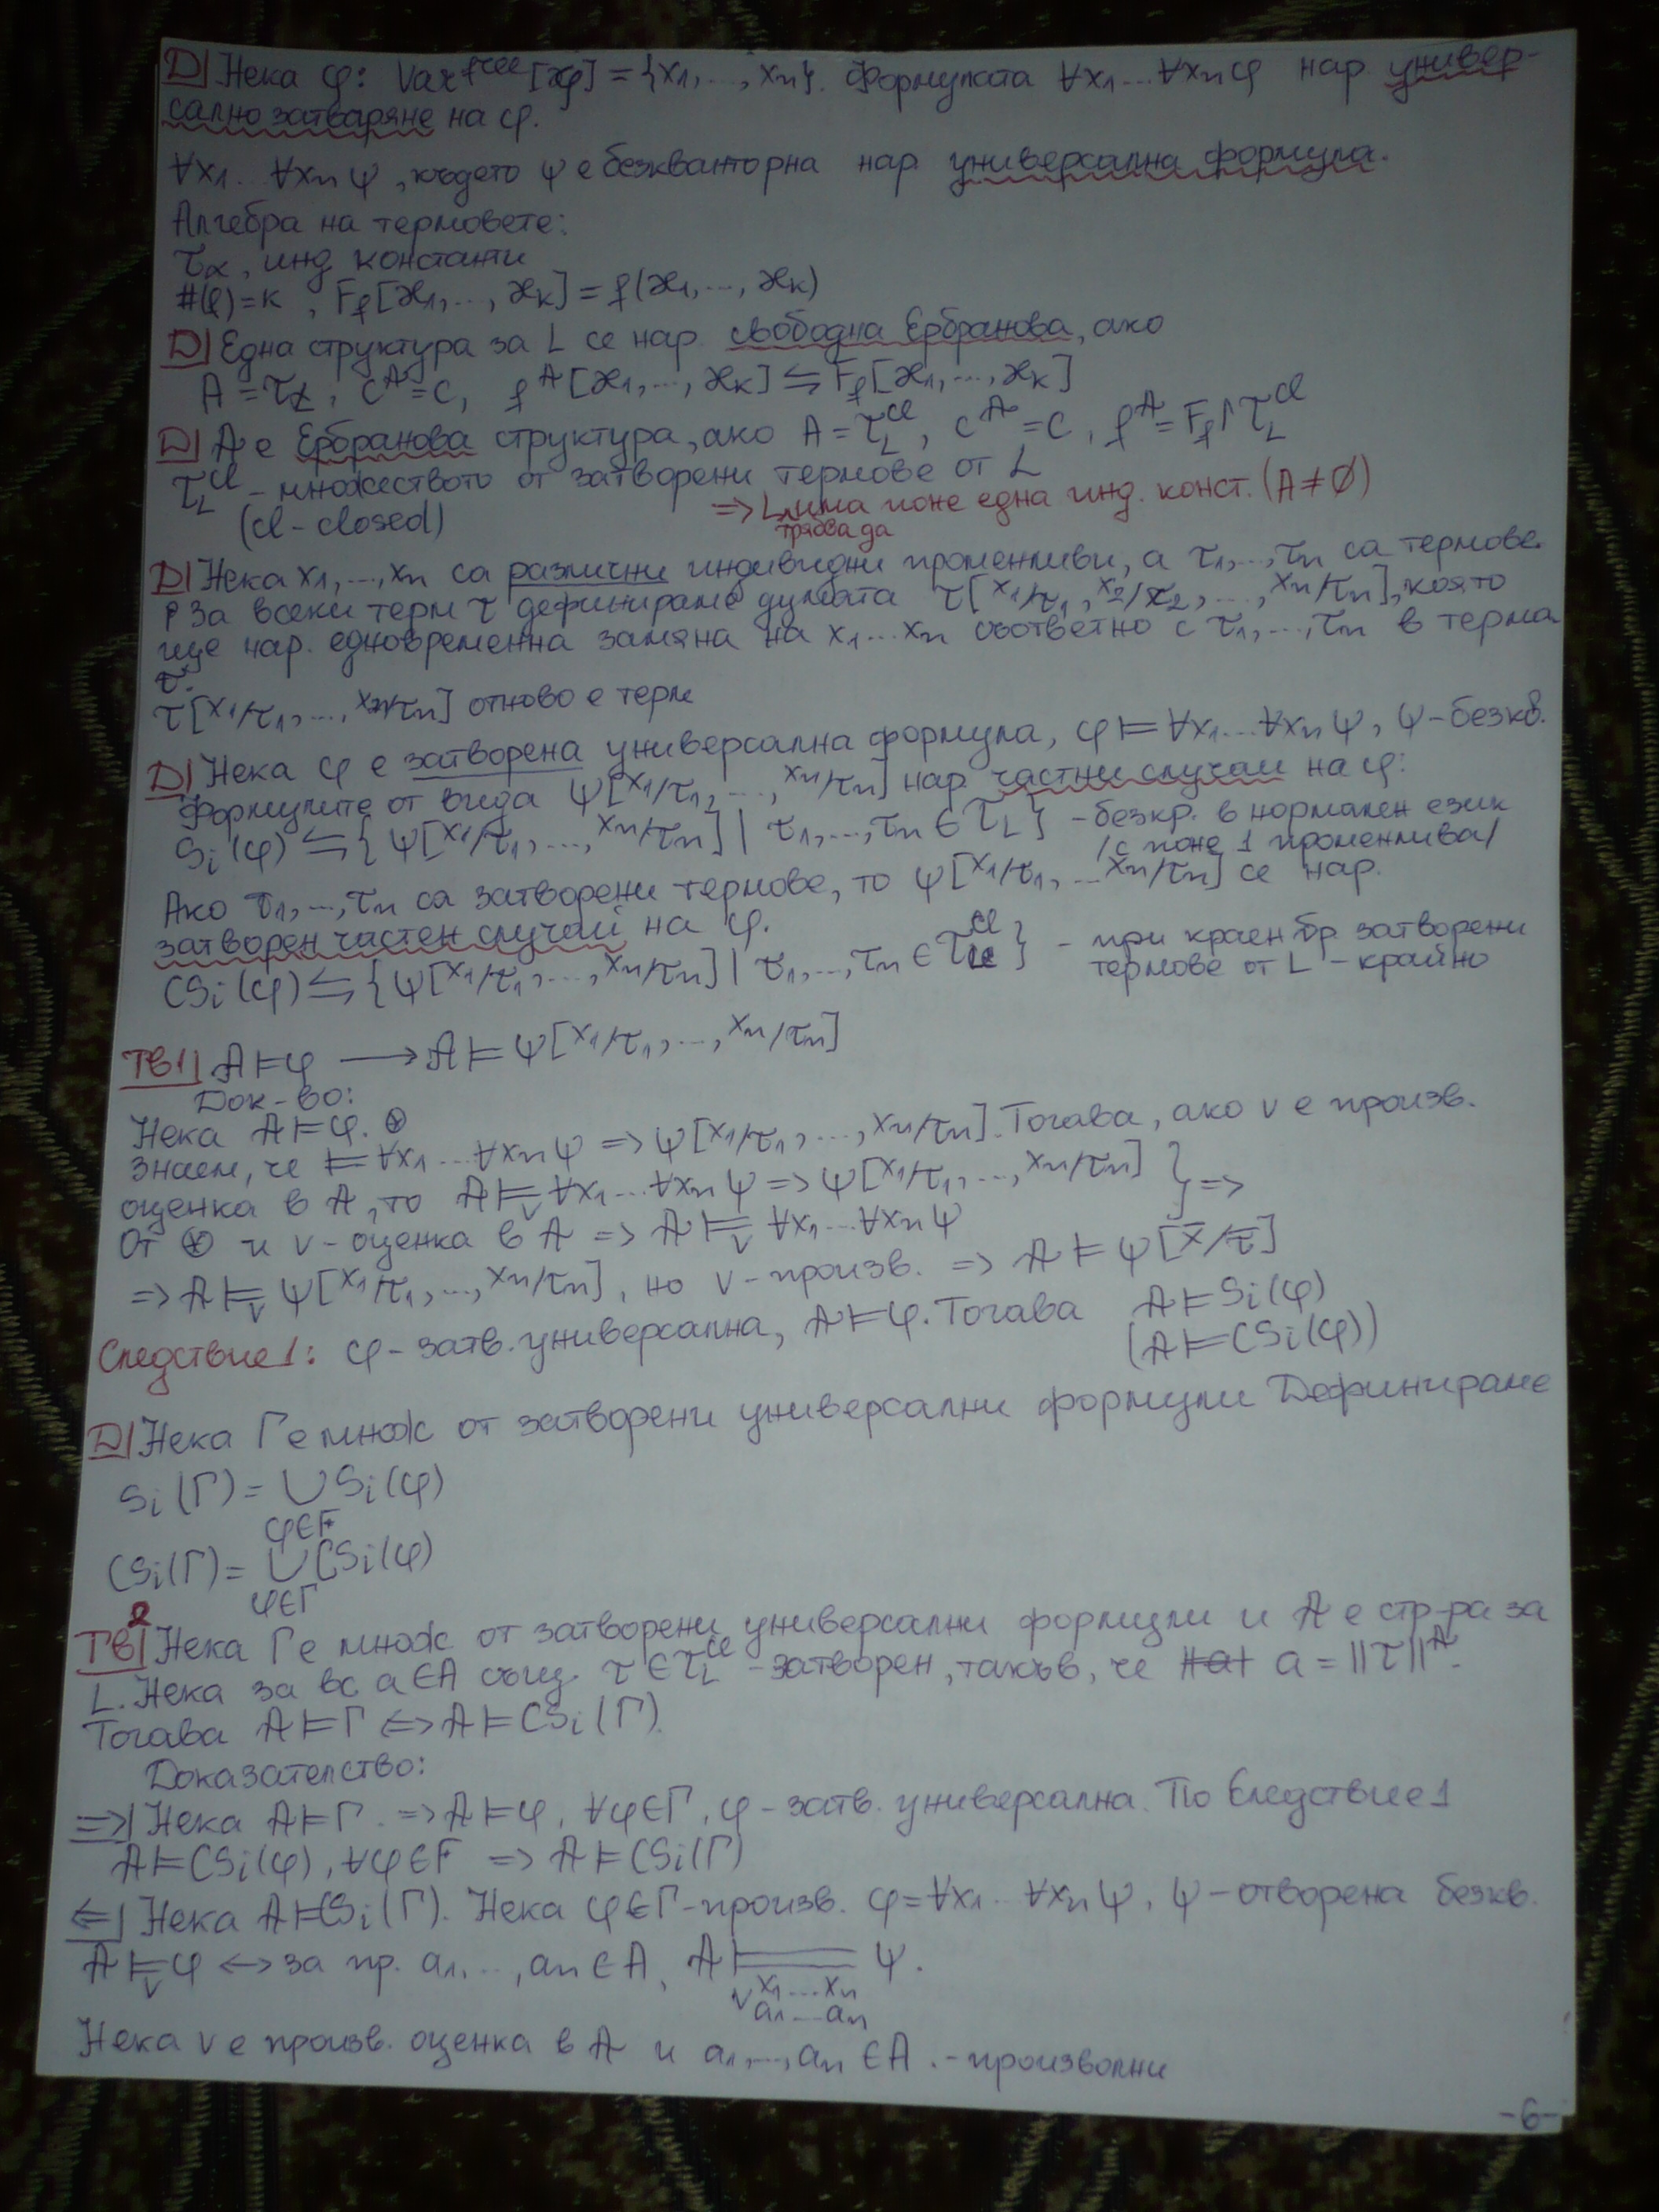 D| Нека φ: Var^free[φ] = {x₁, ..., xₙ}. Формулата ∀x₁...∀xₙφ нар. универ-
сално затваряне на φ.
∀x₁..∀xₙψ, където ψ е безкванторна нар. универсална формула.
Алгебра на термовете:
τ_α, инд. константи
#(f)=k, F_f[ϰ₁, ..., ϰₖ] = f(ϰ₁, ..., ϰₖ)
D| Една структура за L се нар. свободна Ербранова, ако
A = τ_L, c^A = c, f^A[ϰ₁, ..., ϰₖ] ⇋ F_f[ϰ₁, ..., ϰₖ]
D| A е Ербранова структура, ако A = τ_L^cl, c^A = c, f^A = F_f↾τ_L^cl
τ_L^cl - множеството от затворени термове от L
(cl - closed) => L трябва да има поне една инд. конст. (A ≠ ∅)
D| Нека x₁, ..., xₙ са различни индивидни променливи, а τ₁, ..., τₙ са термове.
За всеки терм τ дефинираме думата τ[x₁/τ₁, x₂/τ₂, ..., xₙ/τₙ], която
ще нар. едновременна замяна на x₁...xₙ съответно с τ₁, ..., τₙ в терма
τ.
τ[x₁/τ₁, ..., xₙ/τₙ] отново е терм
D| Нека φ е затворена универсална формула, φ ⊨ ∀x₁...∀xₙψ, ψ - безкв.
Формулите от вида ψ[x₁/τ₁, ..., xₙ/τₙ] нар. частни случаи на φ:
Si(φ) ⇋ {ψ[x₁/τ₁, ..., xₙ/τₙ] | τ₁, ..., τₙ ∈ τ_L} - безкр. в нормален език
/с поне 1 променлива/
Ако τ₁, ..., τₙ са затворени термове, то ψ[x₁/τ₁, ... xₙ/τₙ] се нар.
затворен частен случай на φ.
CSi(φ) ⇋ {ψ[x₁/τ₁, ..., xₙ/τₙ] | τ₁, ..., τₙ ∈ τ_L^cl} - при краен бр. затворени
термове от L - крайно
Тв1| A ⊨ φ ⟶ A ⊨ ψ[x₁/τ₁, ..., xₙ/τₙ]
Док-во:
Нека A ⊨ φ. ⊛
Знаем, че ⊨ ∀x₁...∀xₙψ => ψ[x₁/τ₁, ..., xₙ/τₙ]. Тогава, ако v е произв.
оценка в A, то A ⊨_v ∀x₁...∀xₙψ => ψ[x₁/τ₁, ..., xₙ/τₙ] } =>
От ⊛ и v - оценка в A => A ⊨_v ∀x₁...∀xₙψ
=> A ⊨_v ψ[x₁/τ₁, ..., xₙ/τₙ], но v - произв. => A ⊨ ψ[x̄/τ̄]
Следствие 1: φ - затв. универсална, A ⊨ φ. Тогава A ⊨ Si(φ)
(A ⊨ CSi(φ))
D| Нека Γ е множ от затворени универсални формули Дефинираме
Si(Γ) = ∪ Si(φ)
φ∈Γ
CSi(Γ) = ∪ CSi(φ)
φ∈Γ
Тв2| Нека Γ е множ от затворени универсални формули и A е стр-ра за
L. Нека за вс a ∈ A същ. τ ∈ τ_L^cl - затворен, такъв, че a = ||τ||^A.
Тогава A ⊨ Γ <=> A ⊨ CSi(Γ).
Доказателство:
=>| Нека A ⊨ Γ. => A ⊨ φ, ∀φ∈Γ, φ - затв. универсална. По Следствие 1
A ⊨ CSi(φ), ∀φ∈Γ => A ⊨ CSi(Γ)
<=| Нека A ⊨ CSi(Γ). Нека φ∈Γ - произв. φ = ∀x₁..∀xₙψ, ψ - отворена безкв.
A ⊨_v φ ⟷ за пр. a₁, .., aₙ ∈ A, A ⊨ ψ.
v x₁...xₙ
a₁...aₙ
Нека v е произв. оценка в A и a₁, ..., aₙ ∈ A. - произволни
-6-